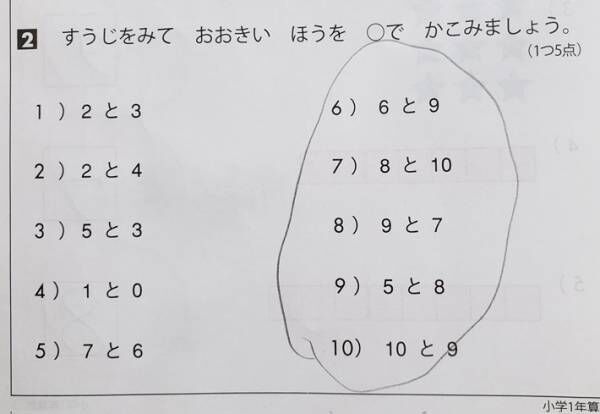 2 すうじをみて おおきい ほうを ○で かこみましょう。
(1つ5点)
1) 2 と 3
2) 2 と 4
3) 5 と 3
4) 1 と 0
5) 7 と 6
6) 6 と 9
7) 8 と 10
8) 9 と 7
9) 5 と 8
10) 10 と 9
小学1年算